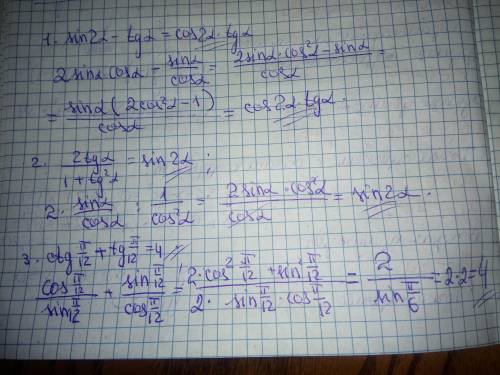 1. sin2α - tgα = cos2α · tgα
2sinα · cosα - sinα/cosα = (2sinα · cos²α - sinα)/cosα =
= sinα(2cos²α - 1)/cosα = cos2α · tgα.
2. 2tgα/(1 + tg²α) = sin2α ;
2 · sinα/cosα : 1/cos²α = 2sinα · cos²α/cosα = sin2α .
3. ctg π/12 + tg π/12 = 4
cos π/12 / sin π/12 + sin π/12 / cos π/12 = (2 · cos² π/12 + sin² π/12)/(2 · sin π/12 · cos π/12) = 2/sin π/6 = 2·2=4